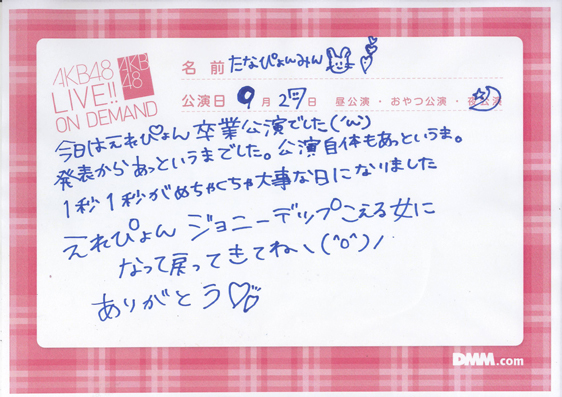 AKB48
LIVE!!
ON DEMAND
AKB
48
名前 たなぴょんみん
公演日 9月27日 昼公演・おやつ公演・夜公演
今日はえれぴょん卒業公演でした(´ω`)
発表からあっというまでした。公演自体もあっというま。
1秒1秒がめちゃくちゃ大事な日になりました
えれぴょん ジョニーデップこえる女に
なって戻ってきてね\(^o^)/
ありがとう
DMM.com